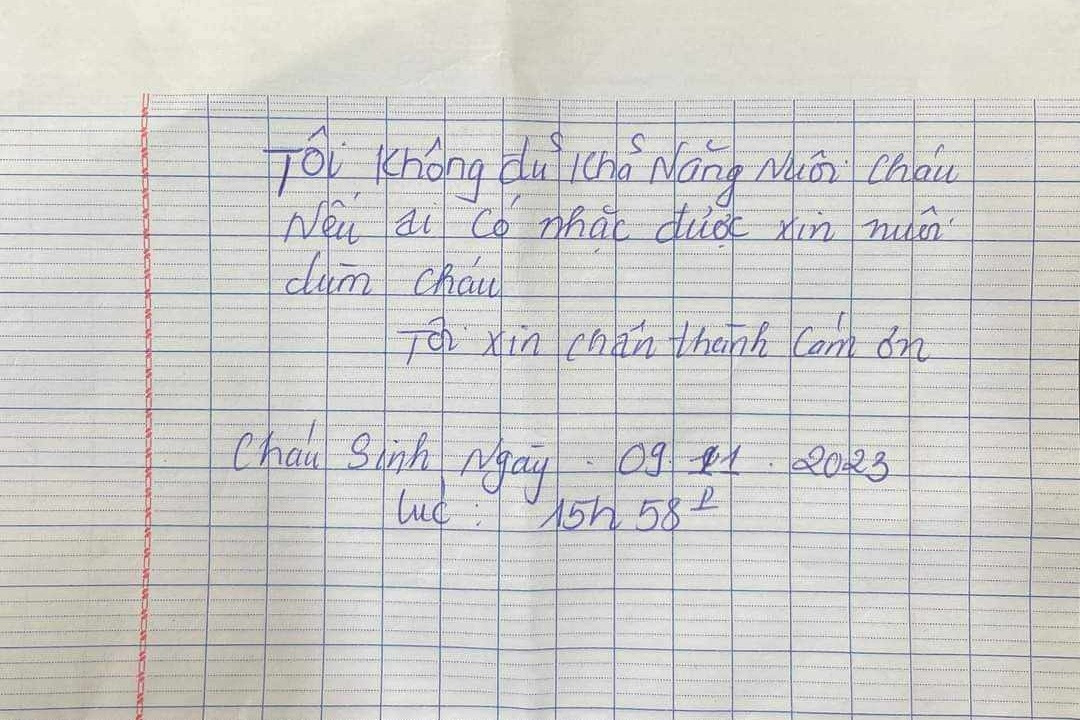 Tôi không đủ khả Năng Nuôi cháu
Nếu ai có nhặc được xin nuôi
dùm cháu
Tôi xin chân thành cảm ơn
Cháu Sinh Ngày . 09 . 11 . 2023
lúc : 15h 58P